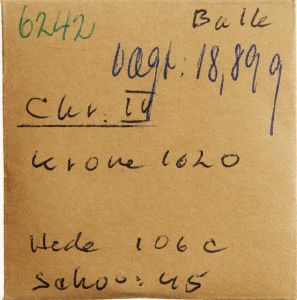 6242 Balle
Vægt: 18,89 g
Chr. IV
Krone 1620
Hede 106 C
Schou: 45